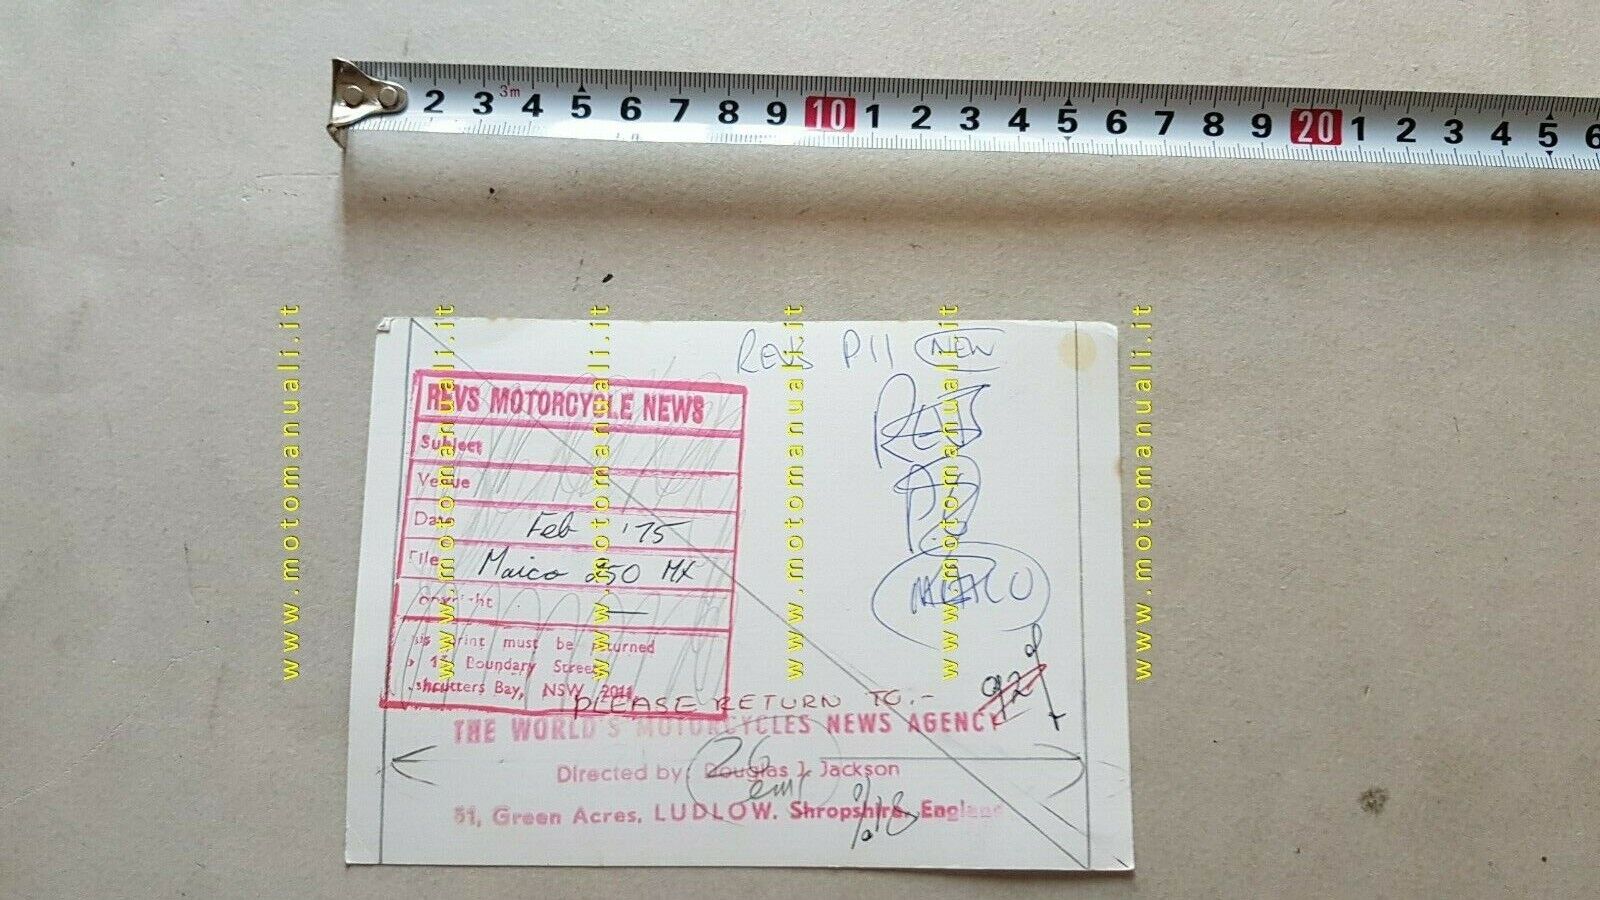 2 3 3m 4 5 6 7 8 9 10 1 2 3 4 5 6 7 8 9 20 1 2 3 4 5 6
REVS P11 NEW
REVS MOTORCYCLE NEWS
Subject
Venue
Date Feb '75
File Maico 250 MX
REVS
P.8
MAICO
print must be returned
Boundary Street
shcutters Bay, NSW 2011
PLEASE RETURN TO:-
92
THE WORLD'S MOTORCYCLES NEWS AGENCY
Directed by: Douglas J. Jackson
26
ems
51, Green Acres, LUDLOW. Shropshire. England
www.motomanuali.it
www.motomanuali.it
www.motomanuali.it
www.motomanuali.it
www.motomanuali.it
www.motomanuali.it